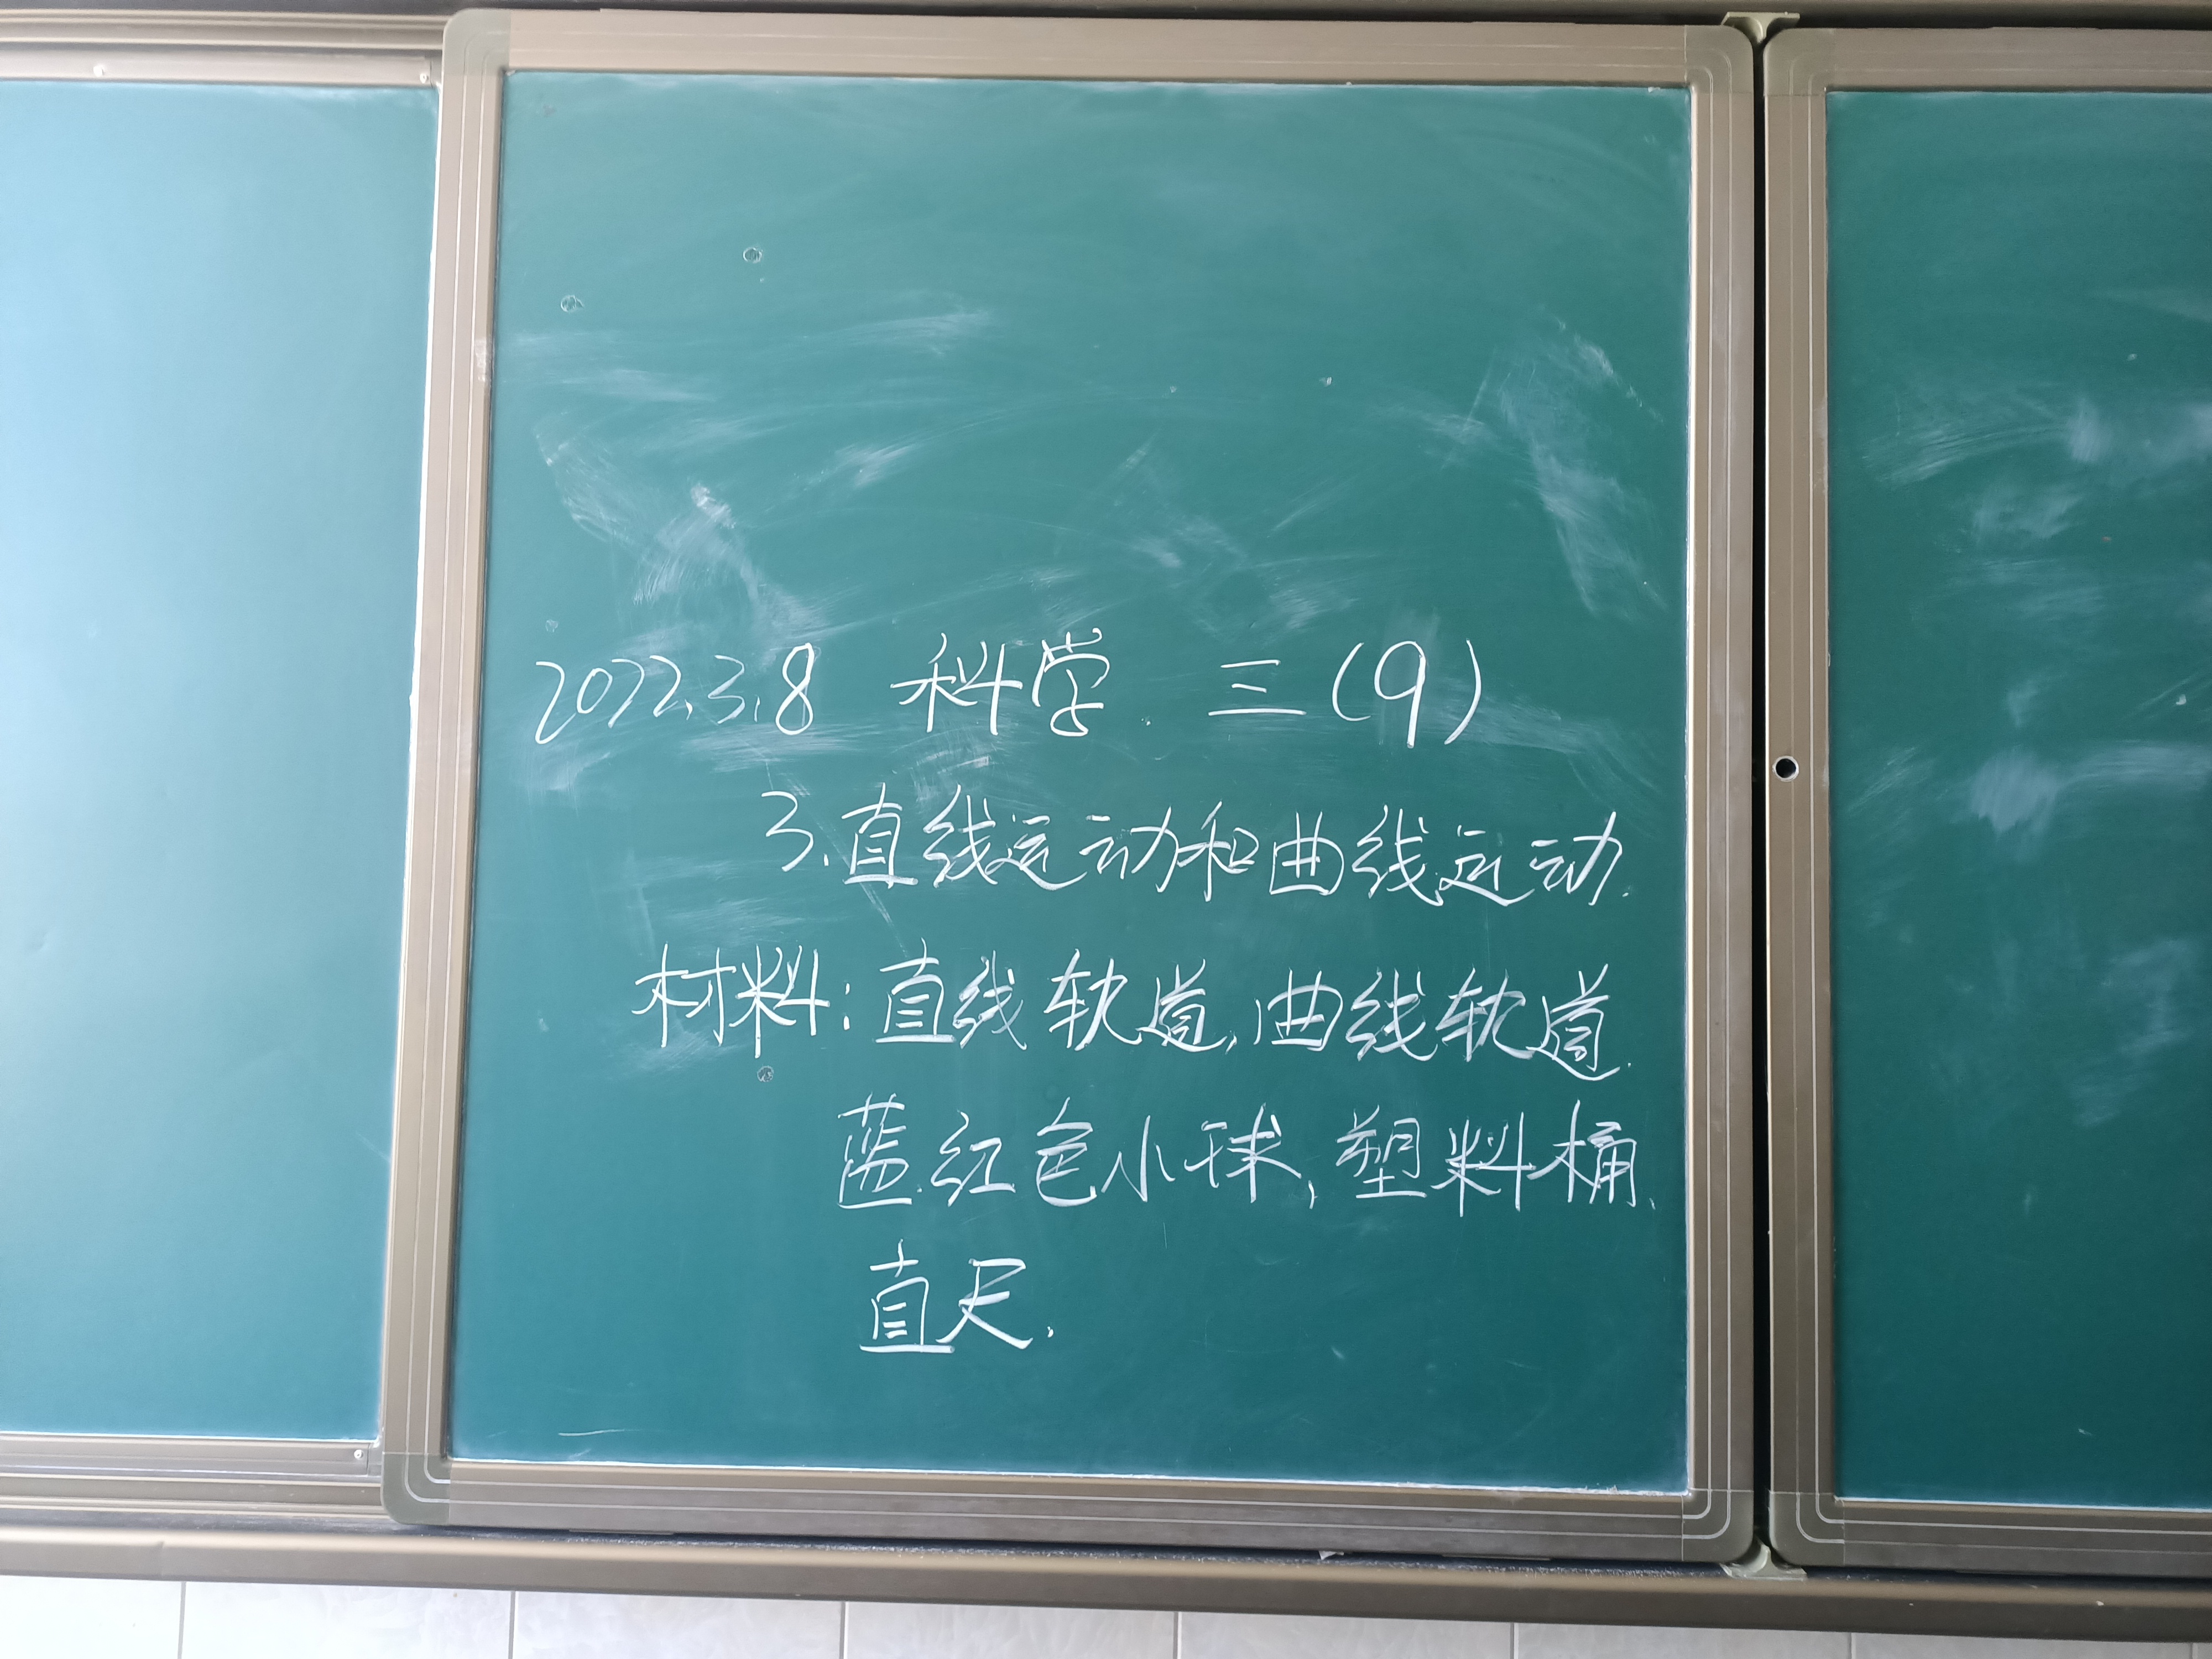 2022.3.8 科学 三(9)
3.直线运动和曲线运动.
材料:直线轨道,曲线轨道.
蓝.红色小球,塑料桶、
直尺.